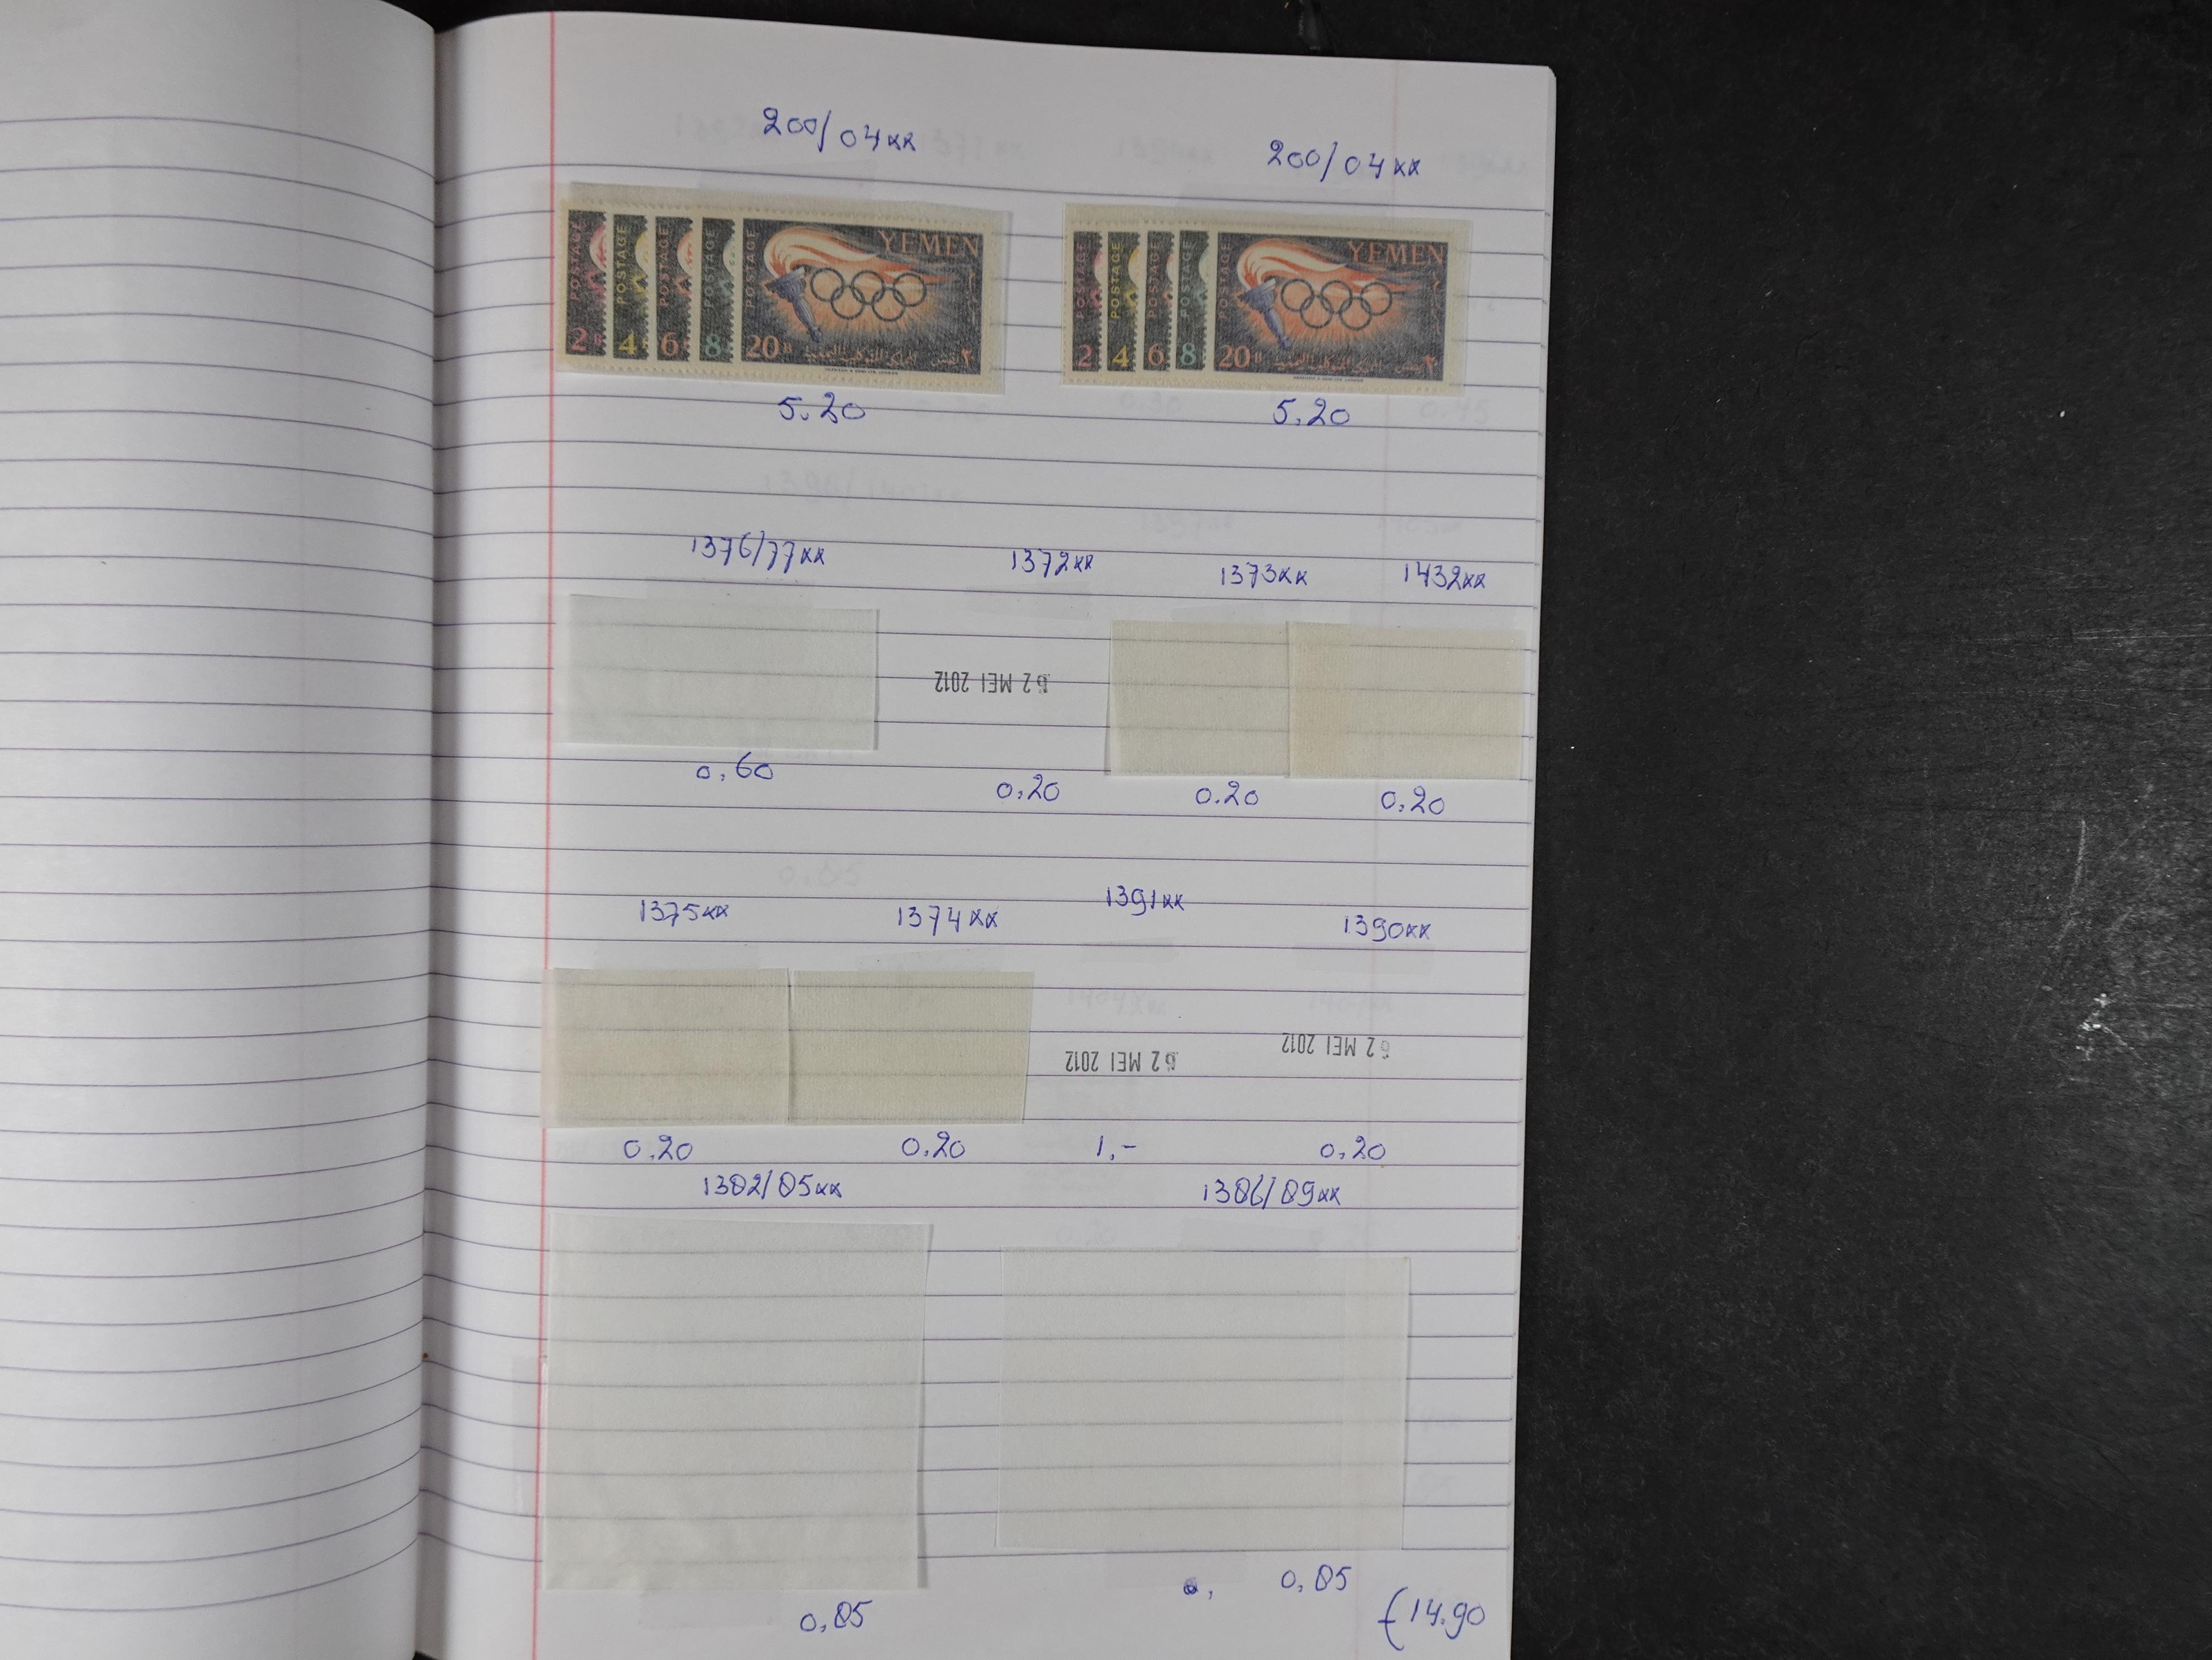 200/04xx 200/04xx
POSTAGE POSTAGE POSTAGE POSTAGE POSTAGE YEMEN
2 4 6 8 20B
POSTAGE POSTAGE POSTAGE POSTAGE YEMEN
2 4 6 8 20B
5.20 5.20
1376/77xx 1372xx 1373xx 1432xx
2 MEI 2012
0,60 0,20 0.20 0,20
1375xx 1374xx 1391xx 1390xx
2 MEI 2012 2 MEI 2012
0.20 0,20 1,- 0,20
1382/85xx 1386/89xx
0,85 0,85
€14.90